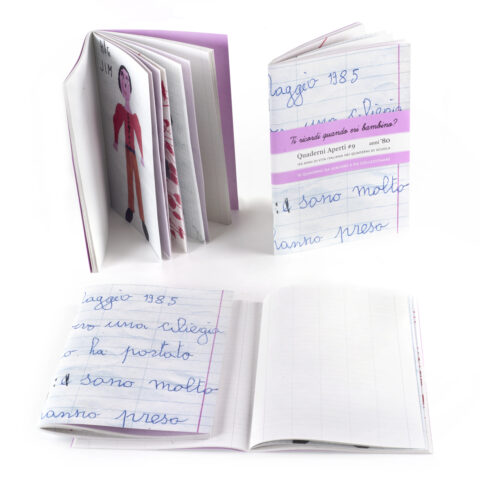 MIG
JIM
laggio 1985
evo una ciliegia
Ti ricordi quando eri bambino?
Quaderni Aperti #9 anni '80
: d sono molto
hanno preso
laggio 1985
evo una ciliegia
o ha portato
: d sono molto
hanno preso